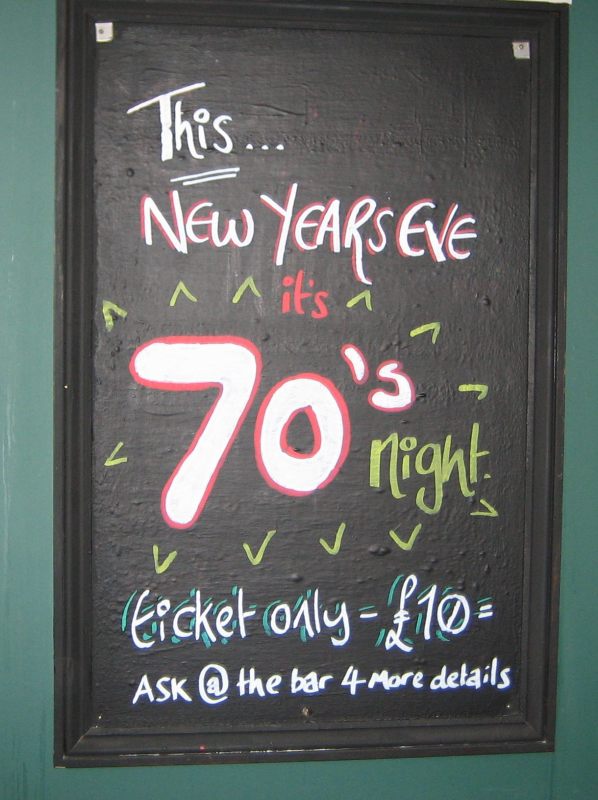 This...
NEW YEARS EVE
it's
70's
night.
ticket only - £10=
ASK @ the bar 4 More details